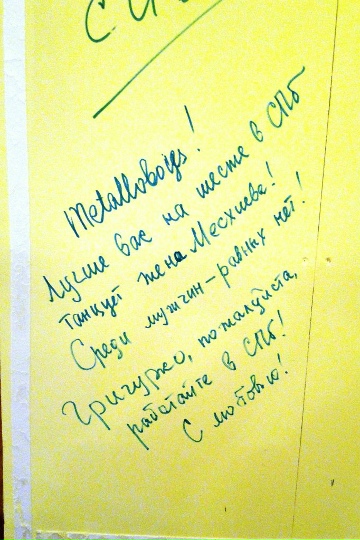 Metalloboys!
Лучше вас на шесте в СПб
танцует жена Месхиева!
Среди мужчин – равных нет!
Григурко, пожалуйста,
работайте в СПб!
С любовью!